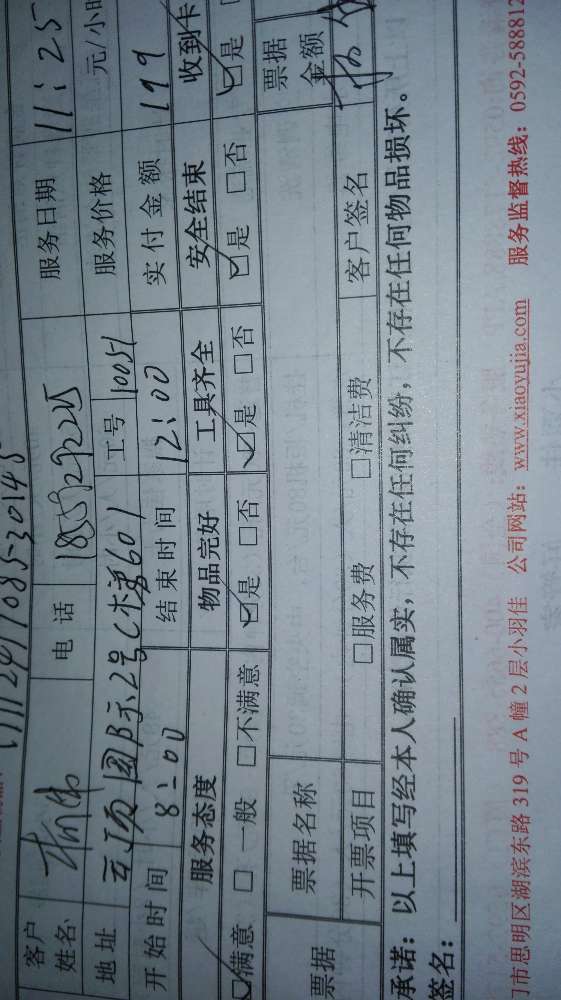 客户姓名 电话 服务日期 11:25
地址 2号C栋601 工号 10051 服务价格 元/小时
开始时间 8:00 结束时间 12:00 实付金额 199
服务态度 物品完好 工具齐全 安全结束 收到卡
☑满意 □一般 □不满意 ☑是 □否 ☑是 □否 ☑是 □否 ☑是
票据 票据名称 票据金额
开票项目 □服务费 □清洁费 客户签名
承诺：以上填写经本人确认属实，不存在任何纠纷，不存在任何物品损坏。
签名：
门市思明区湖滨东路 319 号 A 幢 2 层小羽佳 公司网站：www.xiaoyujia.com 服务监督热线：0592-588812